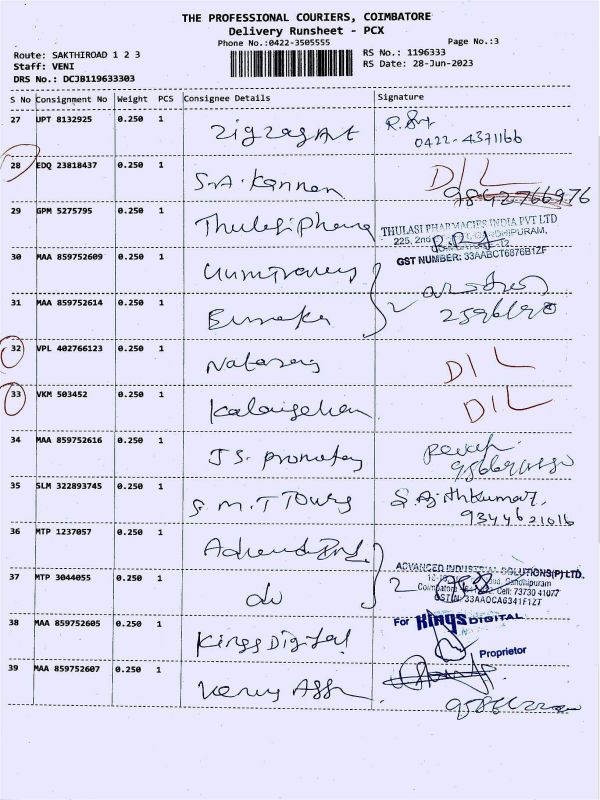 THE PROFESSIONAL COURIERS, COIMBATORE
Delivery Runsheet - PCX
Phone No.:0422-3505555
Page No.:3
Route: SAKTHIROAD 1 2 3
RS No.: 1196333
Staff: VENI
RS Date: 28-Jun-2023
DRS No.: DCJB119633303
S No Consignment No Weight PCS Consignee Details Signature
27 UPT 8132925 0.250 1 Zigzag Art
0422-4371166
28 EDQ 23818437 0.250 1 S.A. Kannan DIL
9842766976
29 GPM 5275795 0.250 1 Thulasi Pharma THULASI PHARMACIES INDIA PVT LTD
225, 2nd GANDHIPURAM,
GST NUMBER: 33AABCT6876B1ZF
30 MAA 859752609 0.250 1
31 MAA 859752614 0.250 1 2
32 VPL 402766123 0.250 1 DIL
33 VKM 503452 0.250 1 DIL
34 MAA 859752616 0.250 1 JS.
35 SLM 322893745 0.250 1 S.M.T Tours S. Ajithkumar,
9344621016
36 MTP 1237057 0.250 1
ADVANCED INDUSTRIAL SOLUTIONS(P)LTD.
37 MTP 3044055 0.250 1 do 2 Gandhipuram
Cell: 73730 41077
GSTIN: 33AAOCA6341F1Z7
38 MAA 859752605 0.250 1 Kings Digital For KINGS DIGITAL
Proprietor
39 MAA 859752607 0.250 1